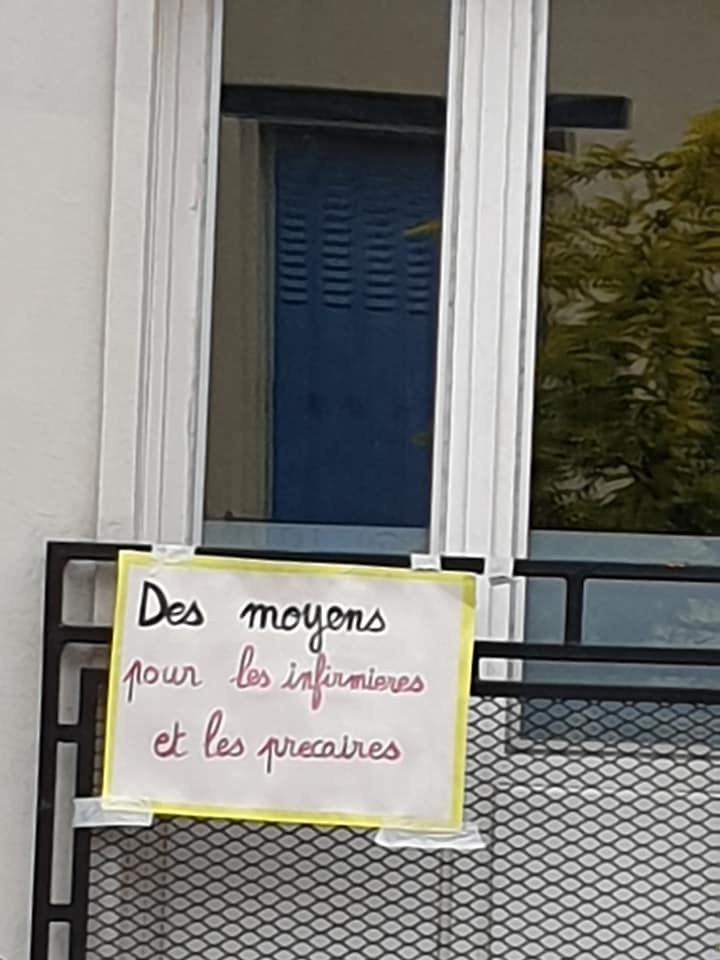 Des moyens
pour les infirmieres
et les precaires